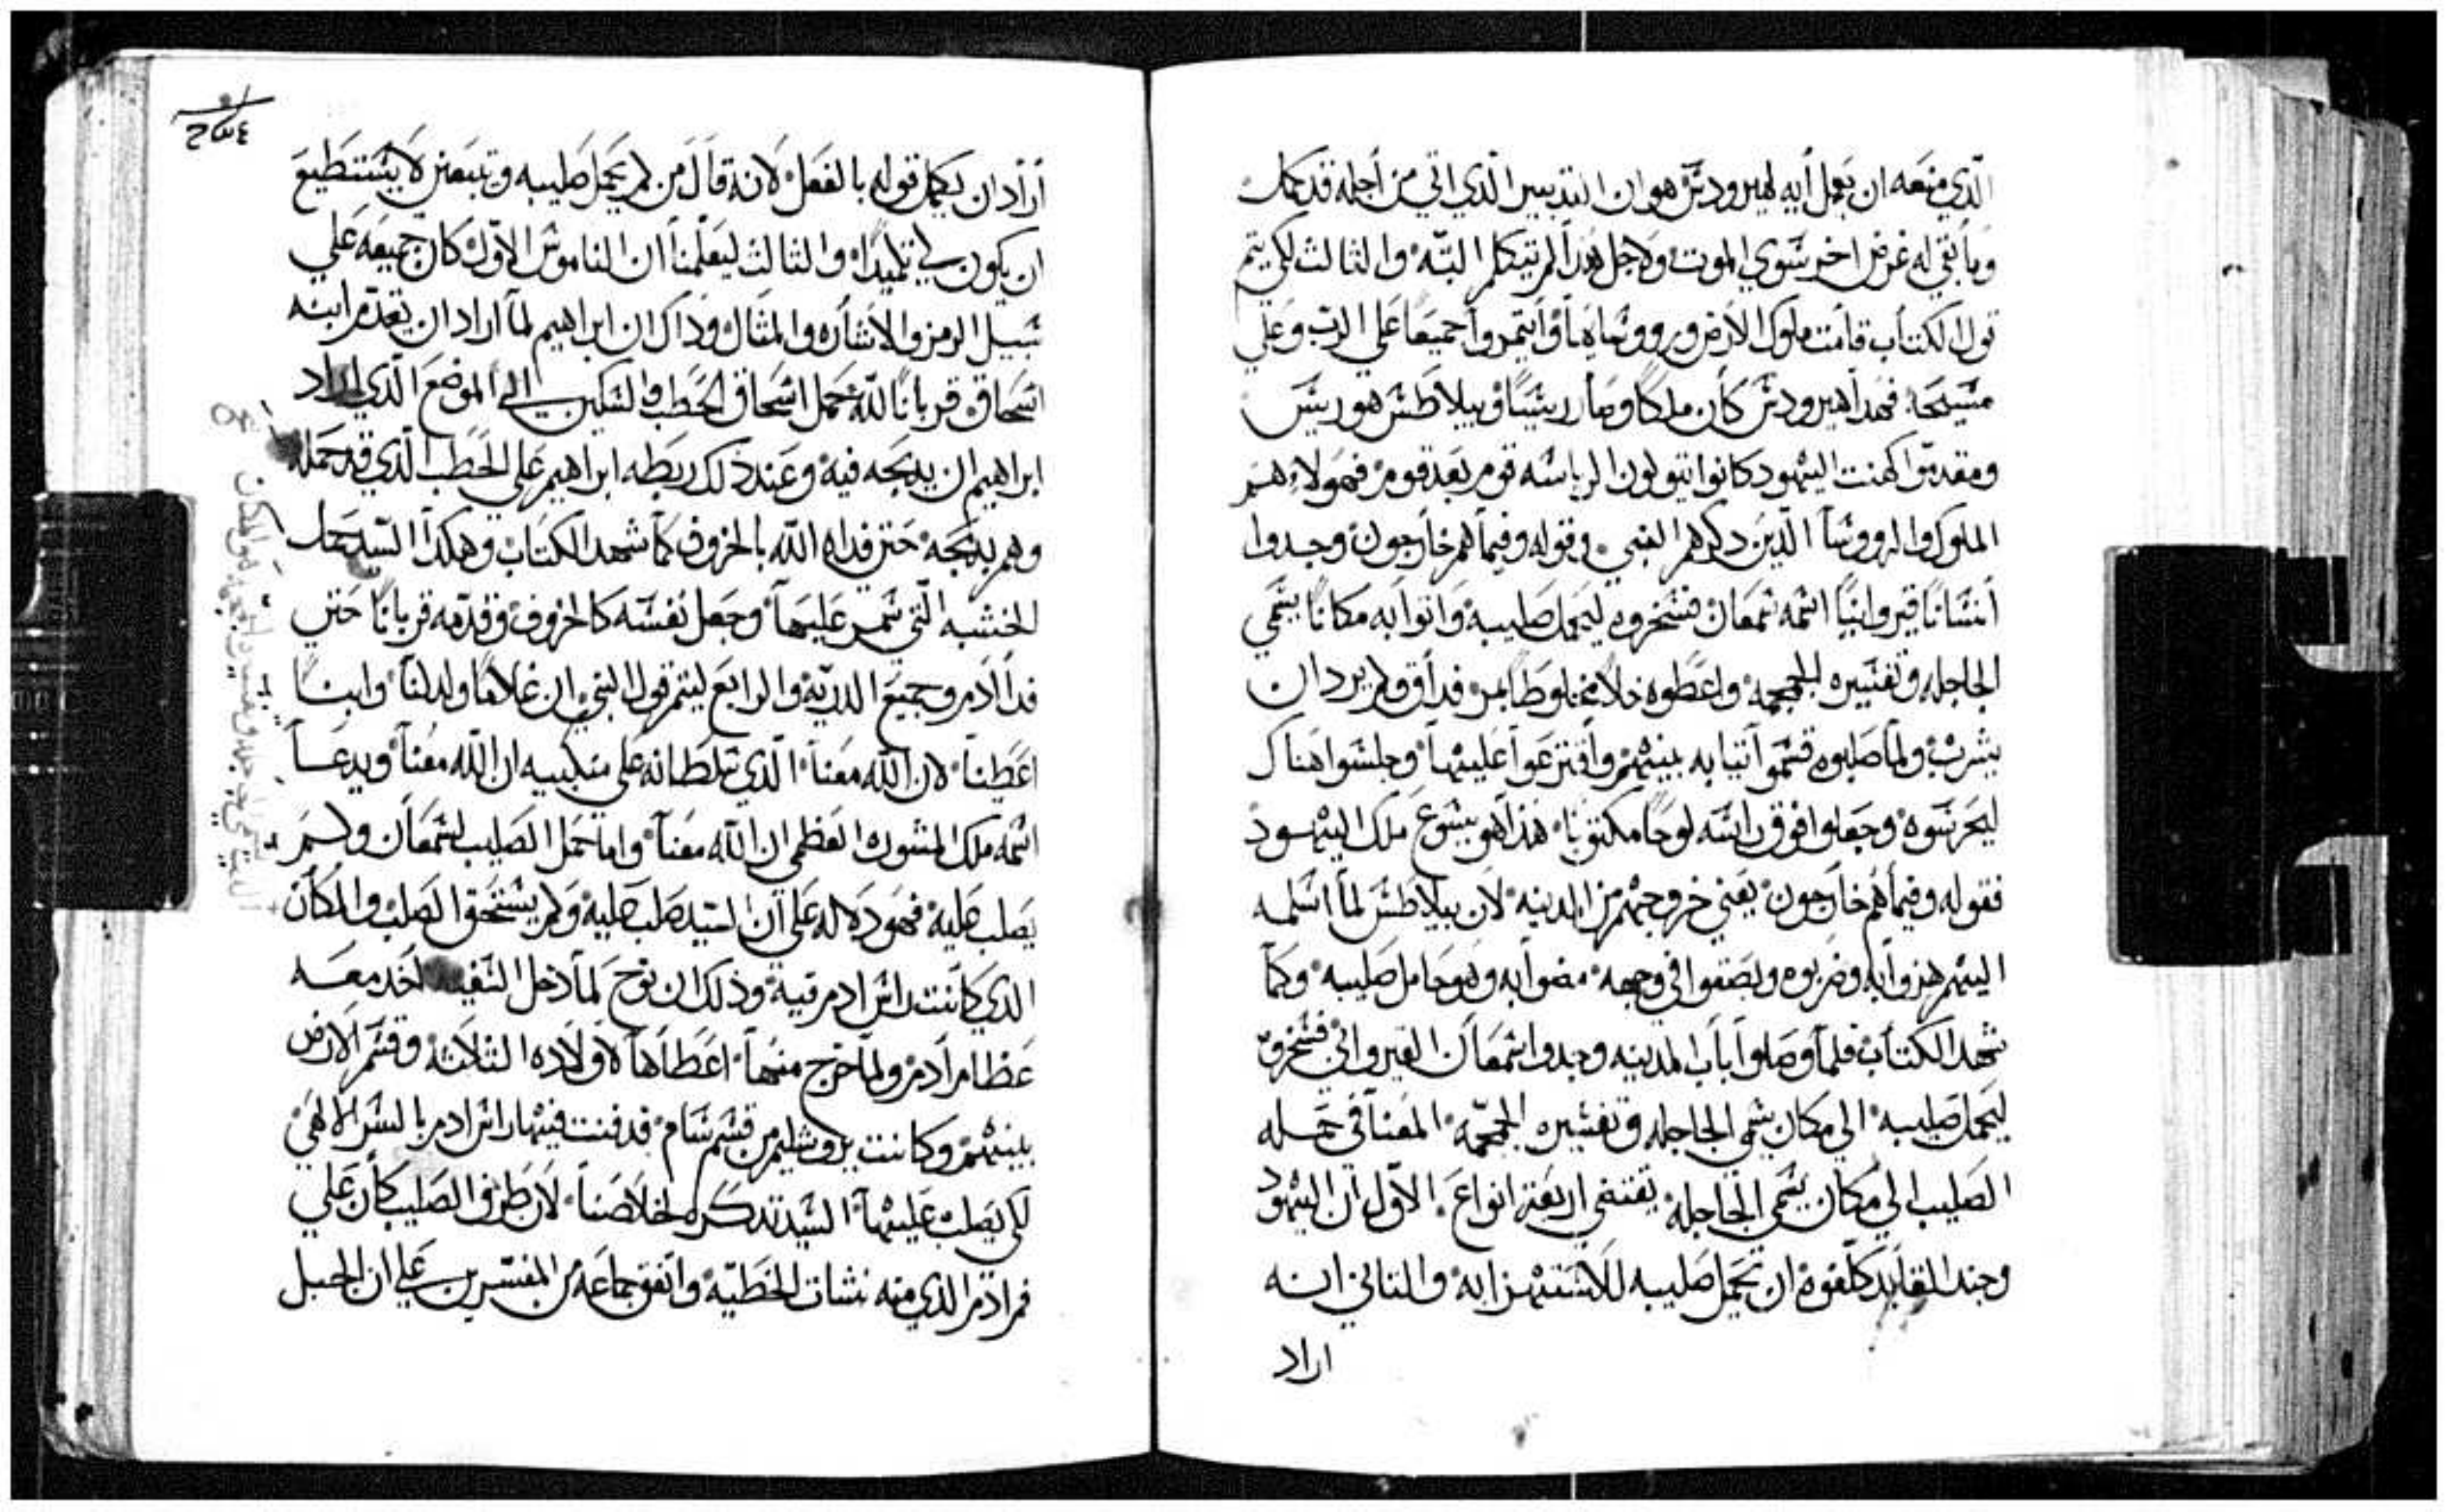 الذي منعه ان يعمل ايه لهيرودس هو ان التدبير الذي اتي من اجله قد كمل
وما بقي له غرض اخر سوي الموت ولاجل هذا لم يتكلم البته والثالث لكي يتم
قول الكتاب قامت ملوك الارض وروساها وايتمروا جميعا علي الرب وعلي
مسيحه فهدا هيرودس كان ملكا وصار ريسا وبيلاطس هو ريس
ومقدموا كهنت اليهود كانوا يتولون الرياسه قوم بعد قوم فهولاء هم
الملوك والروسا الدين دكرهم النبي وقوله وفيما هم خارجون وجدوا
انسانا قيروانيا اسمه سمعان فسخروه ليحمل صليبه واتوا به مكانا يسمي
الجاجله وتفسيره الجمجمه واعطوه خلا مخلوطا بمر فداق ولم يرد ان
يشرب ولما صلبوه قسموا تيابه بينهم واقترعوا عليها وجلسوا هناك
ليحرسوه وجعلوا فوق راسه لوحا مكتوبا هذا هو يسوع ملك اليهود
فقوله وفيما هم خارجون يعني خروجهم من المدينه لان بيلاطس لما اسلمه
اليهم هزوا به وضربوه وبصقوا في وجهه مضوا به وهو حامل صليبه وكما
شهد الكتاب فلما وصلوا باب المدينه وجدوا سمعان القيرواني فسخروه
ليحمل صليبه الي مكان يسمي الجاجله وتفسيره الجمجمه المعنا في حمله
الصليب الي مكان يسمي الجاجله يقتضي اربعة انواع الاول ان اليهود
وجند القايد كلفوه ان يحمل صليبه للاستهزا به والتاني انه
اراد
ارادان يكمل قوله بالفعل لانه قال من لم يحمل صليبه ويتبعني لا يستطيع
ان يكون لي تلميدا والثالث ليعلمنا ان الناموس الاول كان جميعه علي
سبيل الرمز والاشاره والمثال وذاك ان ابراهيم لما اراد ان يقدم ابنه
اسحاق قربانا لله حمل اسحاق الحطب والسكين الي الموضع الذي اراد
ابراهيم ان يدبحه فيه وعند ذلك ربطه ابراهيم علي الحطب الذي قد حمله
وهم بدبحه حتي فداه الله بالخروف كما شهد الكتاب وهكدا السيد حمل
الخشبه التي سمر عليها وجعل نفسه كالخروف وقدمه قربانا حتي
فدا ادم وجميع الدريه والرابع ليتم قول النبي ان غلاما ولد لنا وابنا
اعطينا لان الله معنا الذي سلطانه علي منكبيه ان الله معنا ويدعا
اسمه ملك المشوره العظمي ان الله معنا واما حمل الصليب لسمعان ولم
يصلب عليه فهو دلاله علي ان السيد صلب عليه ولم يستحق الصلب والمكان
الدي كانت راس ادم فيه وذلك ان نوح لما دخل السفينه اخد معه
عظام ادم ولما خرج منها اعطاها لاولاده الثلاثه وقسم الارض
بينهم وكانت يروشليم من قسم سام فدفنت فيها راس ادم بالسر الالهي
لكي يصلب عليها السيد تدكره لخلاصنا لان طرف الصليب كان علي
فم ادم الذي منه نشات الخطيه واتفق جماعه من المفسرين علي ان الجبل